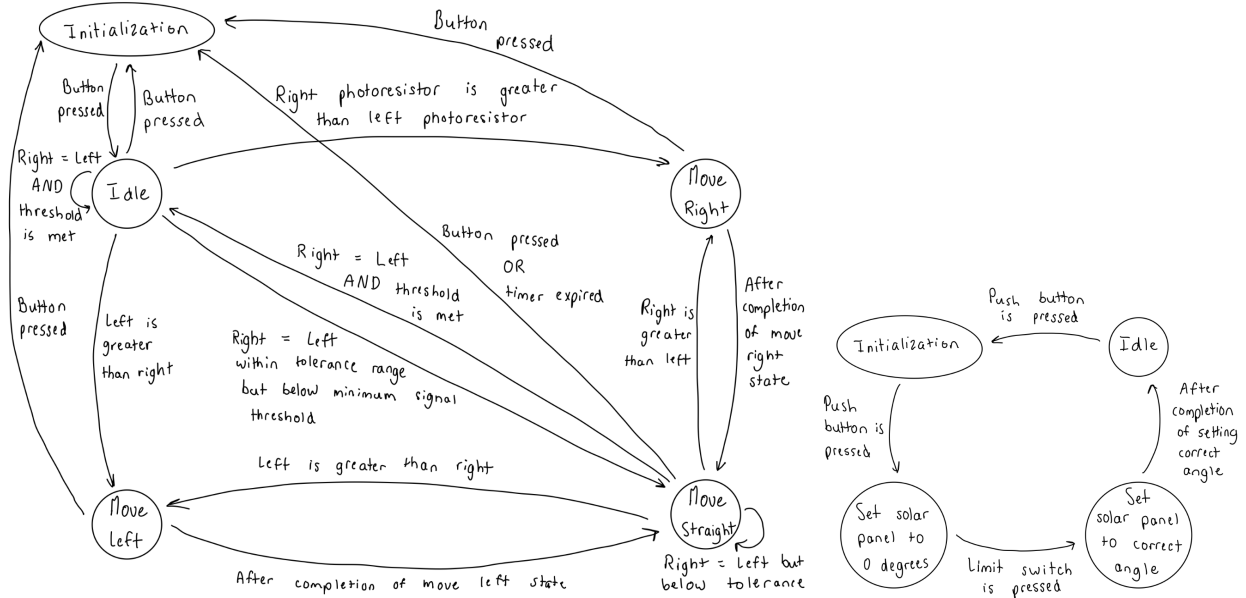 Initialization
Button
pressed
Button
pressed
Button
pressed
Right photoresistor is greater
than left photoresistor
Right = Left
AND
threshold
is met
Idle
Move
Right
Button pressed
OR
timer expired
Right = Left
AND threshold
is met
Right = Left
within tolerance range
but below minimum signal
threshold
Button
pressed
Left is
greater
than right
Right is
greater
than left
After
completion
of move
right
state
Left is greater than right
Move
Left
Move
Straight
After completion of move left state
Right = Left but
below tolerance
Push button
is pressed
Initialization
Idle
Push
button is
pressed
After
completion
of setting
correct
angle
Set solar
panel to
0 degrees
Limit switch
is pressed
Set
solar panel
to correct
angle